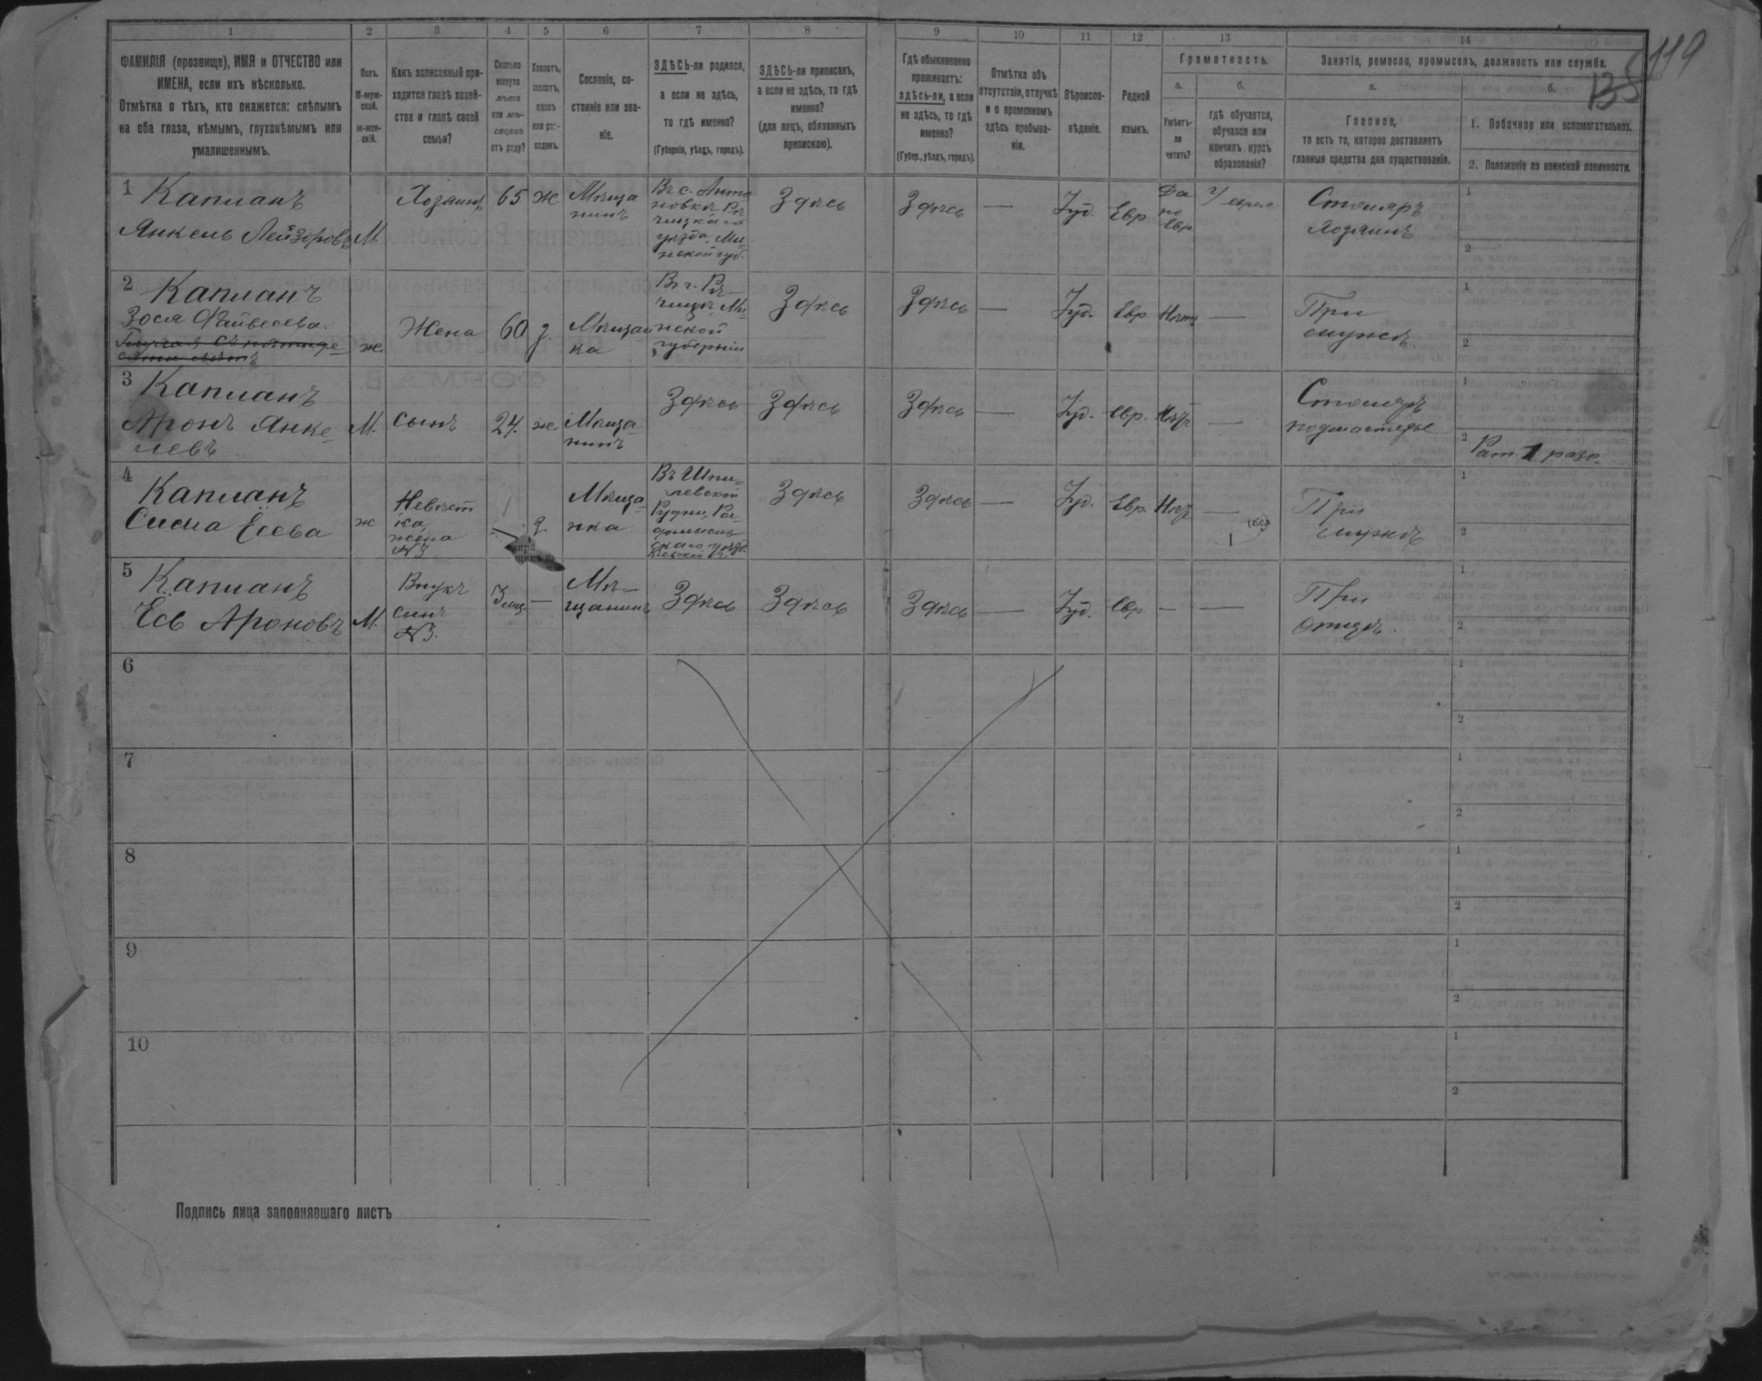 1 2 3 4 5 6 7 8 9 10 11 12 13 14
119
ФАМИЛІЯ (прозвище), ИМЯ и ОТЧЕСТВО или
ИМЕНА, если ихъ нѣсколько.
Отмѣтка о тѣхъ, кто окажется: слѣпымъ
на оба глаза, нѣмымъ, глухонѣмымъ или
умалишеннымъ.
Полъ.
М-муж-
ской.
Ж-жен-
скій.
Какъ записанный при-
ходится главѣ хозяй-
ства и главѣ своей
семьи?
Сколько
минуло
лѣтъ
или мѣ-
сяцевъ
отъ роду?
Холостъ,
женатъ,
вдовъ
или раз-
веденъ.
Сословіе, со-
стояніе или зва-
ніе.
ЗДѢСЬ-ли родился,
а если не здѣсь,
то гдѣ именно?
(Губернія, уѣздъ, городъ).
ЗДѢСЬ-ли приписанъ,
а если не здѣсь, то гдѣ
именно?
(для лицъ, обязанныхъ
припискою).
Гдѣ обыкновенно
проживаетъ:
здѣсь-ли, а если
не здѣсь, то гдѣ
именно?
(Губер., уѣздъ, городъ).
Отмѣтка объ
отсутствіи, отлучкѣ
и о временномъ
здѣсь пребыва-
ніи.
Вѣроиспо-
вѣданіе.
Родной
языкъ.
Грамотность.
а.
Умѣетъ-
ли
читать?
б.
гдѣ обучается,
обучался или
кончилъ курсъ
образованія?
Занятіе, ремесло, промыселъ, должность или служба.
а.
Главное,
то есть то, которое доставляетъ
главныя средства для существованія.
б.
1. Побочное или вспомогательное.
2. Положеніе по воинской повинности.
1 Капланъ
Янкель Лейзоровъ
М.
Хозяинъ
65
ж
Мѣща
нинъ
Въ с. Анто
новкѣ Рѣ
чицкаго
уѣзда, Ми
нской губ.
Здѣсь
Здѣсь
—
Іуд.
Евр.
Да
по
Евр.
Столяръ
Хозяинъ
1
2
2 Капланъ
Зося Файвесева.
ж.
Жена
60
з.
Мѣщан
ка
Въ г. Рѣ-
чицѣ, Ми
нской
губерніи
Здѣсь
Здѣсь
—
Іуд.
Евр
Нѣтъ
—
При
мужѣ
1
2
3 Капланъ
Аронъ Янке
левъ
М.
Сынъ
24.
ж.
Мѣща-
нинъ
Здѣсь
Здѣсь
Здѣсь
—
Іуд.
Евр.
Нѣтъ
—
Столяръ
подмастерье
1
2 Рат. 1 разр.
4 Капланъ
Сисла Есева
ж
Невѣст
ка,
жена
№3
з.
Мѣща
нка
Здѣсь
Здѣсь
—
Іуд.
Евр.
Нѣтъ
—
При
мужѣ
1
2
5 Капланъ
Есь Ароновъ
М.
Внукъ
сынъ
№3.
3 мѣс.
—
Мѣ-
щанинъ
Здѣсь
Здѣсь
Здѣсь
—
Іуд.
Евр.
—
—
При
отцѣ.
1
2
6
1
2
7
1
2
8
1
2
9
1
2
10
1
2
Подпись лица заполнявшаго листъ